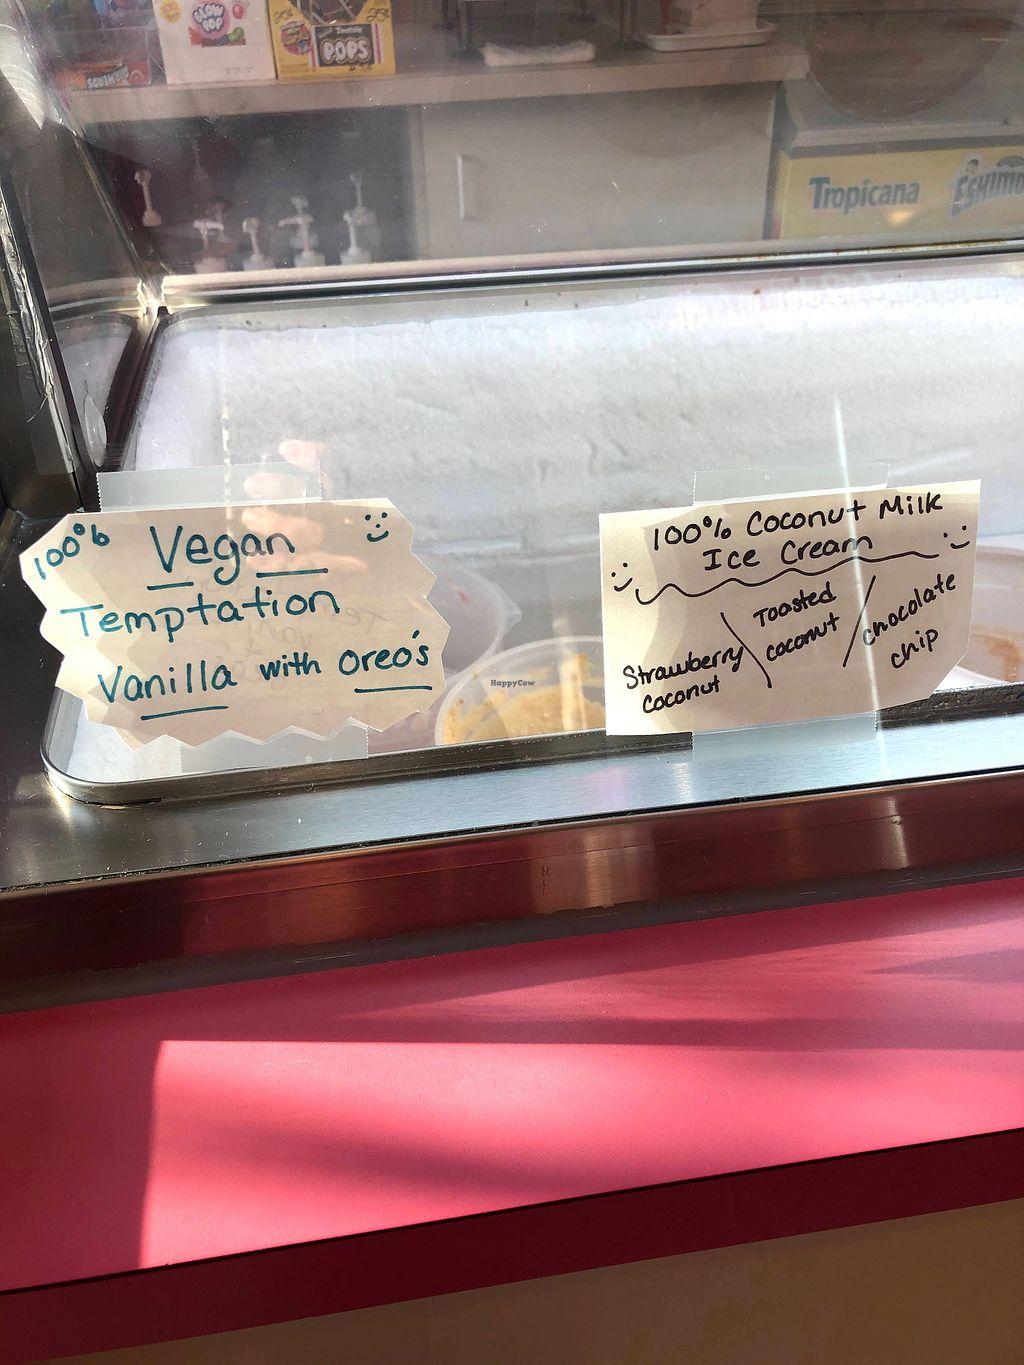 BLOW
POP
Tootsie
POPS
Tropicana
ESKIMO
100% Vegan
Temptation
Vanilla with oreo's
100% Coconut Milk
Ice Cream
Strawberry
coconut
Toasted
coconut
chocolate
chip
HappyCow